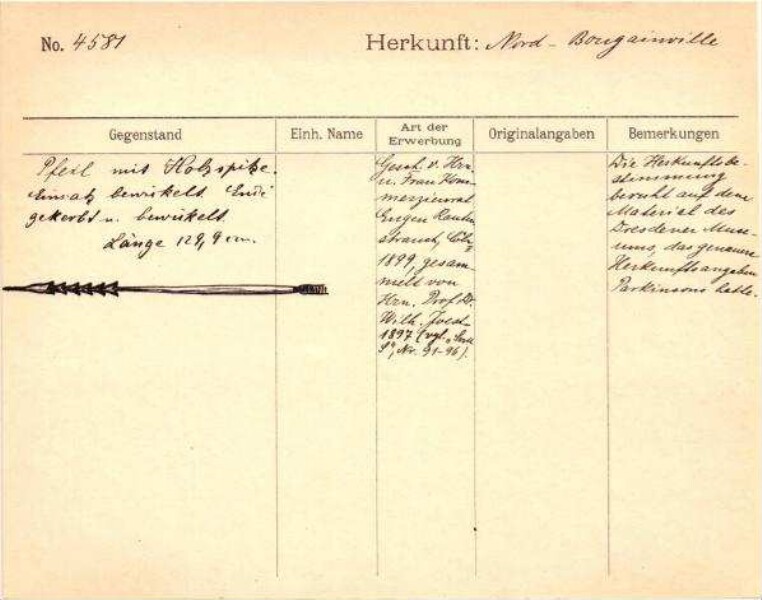 No. 4581
Herkunft: Nord-Bougainville
Gegenstand
Einh. Name
Art der Erwerbung
Originalangaben
Bemerkungen
Pfeil mit Holzspitze.
Einsatz bewickelt. Ende
gekerbt u. bewickelt.
Länge 129,9 cm.
Gesch. v. Hrn.
u. Frau Kom-
merzienrat
Eugen Rauten-
strauch, Cöln
1899, gesam-
melt von
Hrn. Prof. Dr.
Wilh. Joest
1897 (vgl.
S", Nr. 91-96).
Die Herkunftsbe-
stimmung
beruht auf dem
Material des
Dresdener Muse-
ums, das genauere
Herkunftsangaben
Parkinsons hatte.